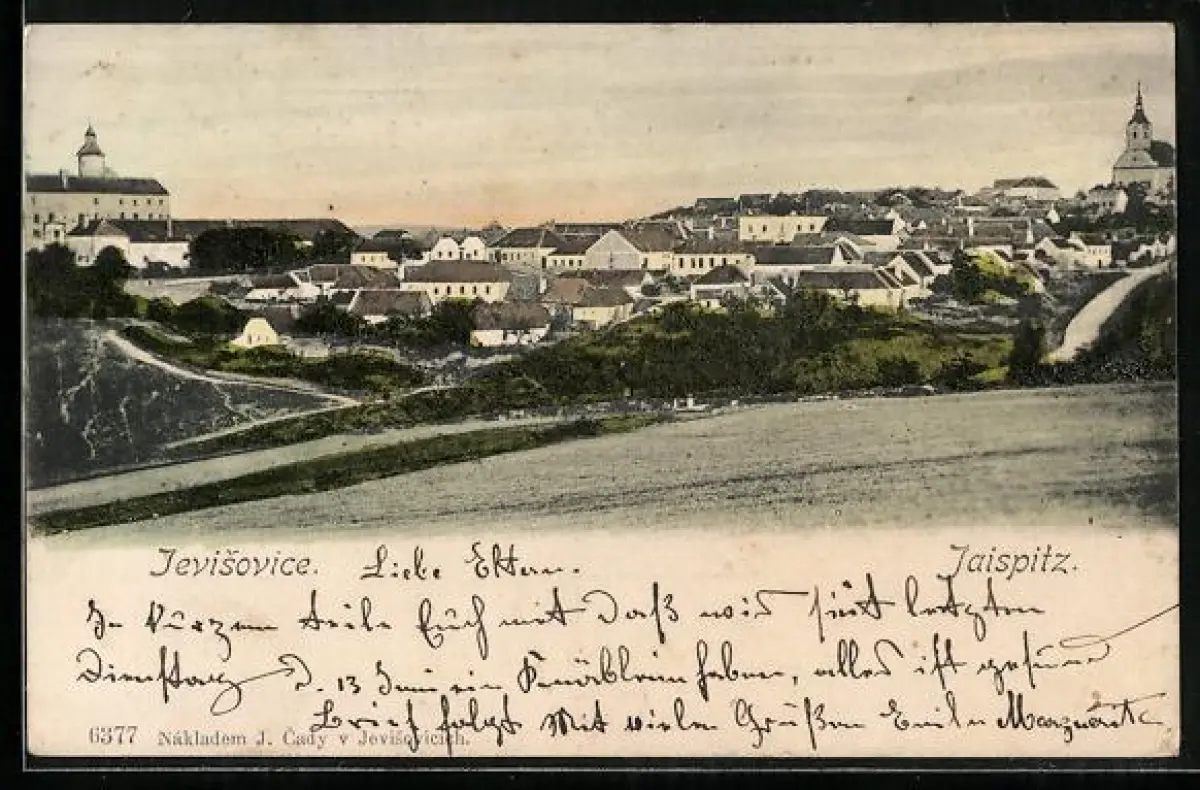 Jevišovice.
Jaispitz.
Liebe Eltern.
In Kürzem teile Euch mit daß wir seit letzten
Dienstag d. 13 Juni ein Knäblein haben, alles ist gesund
Brief folgt Mit vielen Grüßen Emil
6377 Nákladem J. Čady v Jevišovicích.